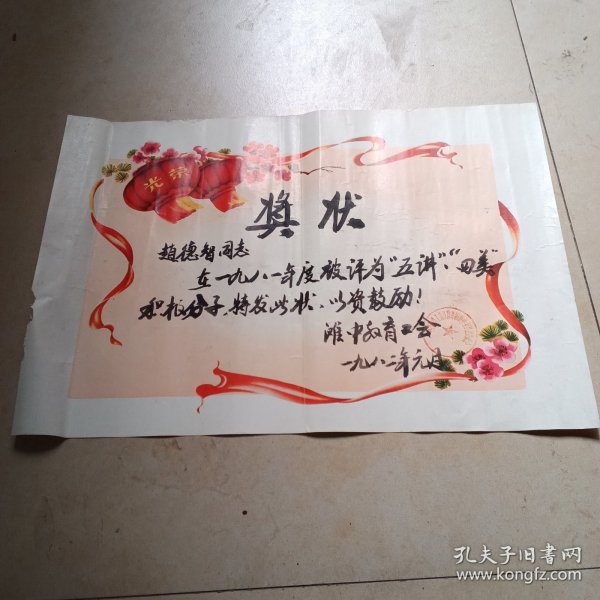 光荣
奖状
趙德智同志
在一九八一年度被评为“五讲”、“四美”
积极分子,特发此状,以资鼓励!
潍中教育工会
一九八二年元月
孔夫子旧书网
www.kongfz.com